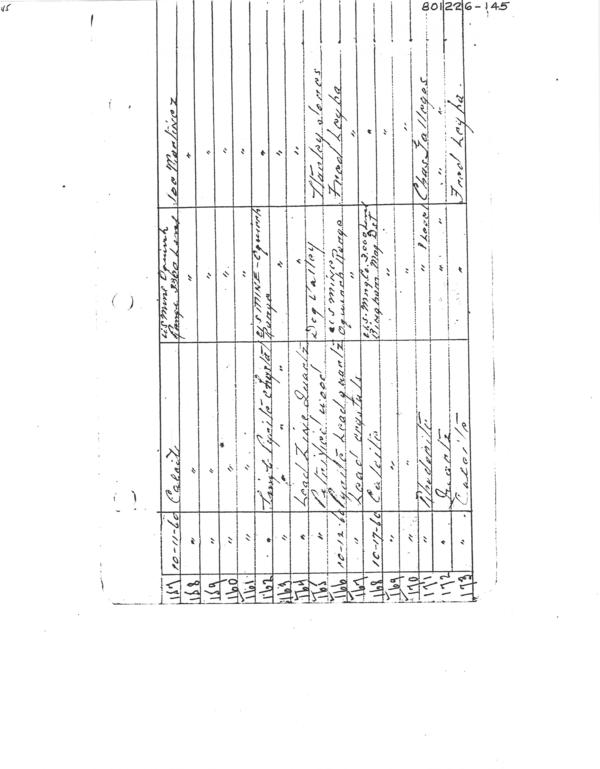 801226-145
157 10-11-60 Calcit U.S. Mine Oquirrh Range 3900 Level Joe Martinez
158 " " " "
159 " " " "
160 " " " "
161 " " " "
162 " Zinc-Pyrite-Crystal U.S MINE-Oquirrh Range "
163 " " " "
164 " Lead Zinc Quartz " "
165 " Petrified wood Dog Valley Harley Jones
166 10-12-60 Pyrite Lead quartz U.S MINE Oquirrh Range Fred Leyba
167 " Lead crystals " "
168 10-17-60 Calcite 3000 Level Bingham "
169 " " " "
170 " " " "
171 " Rhodenite " Level Chas Gallegos
172 " Quartz " "
173 " Calcite " Fred Leyba